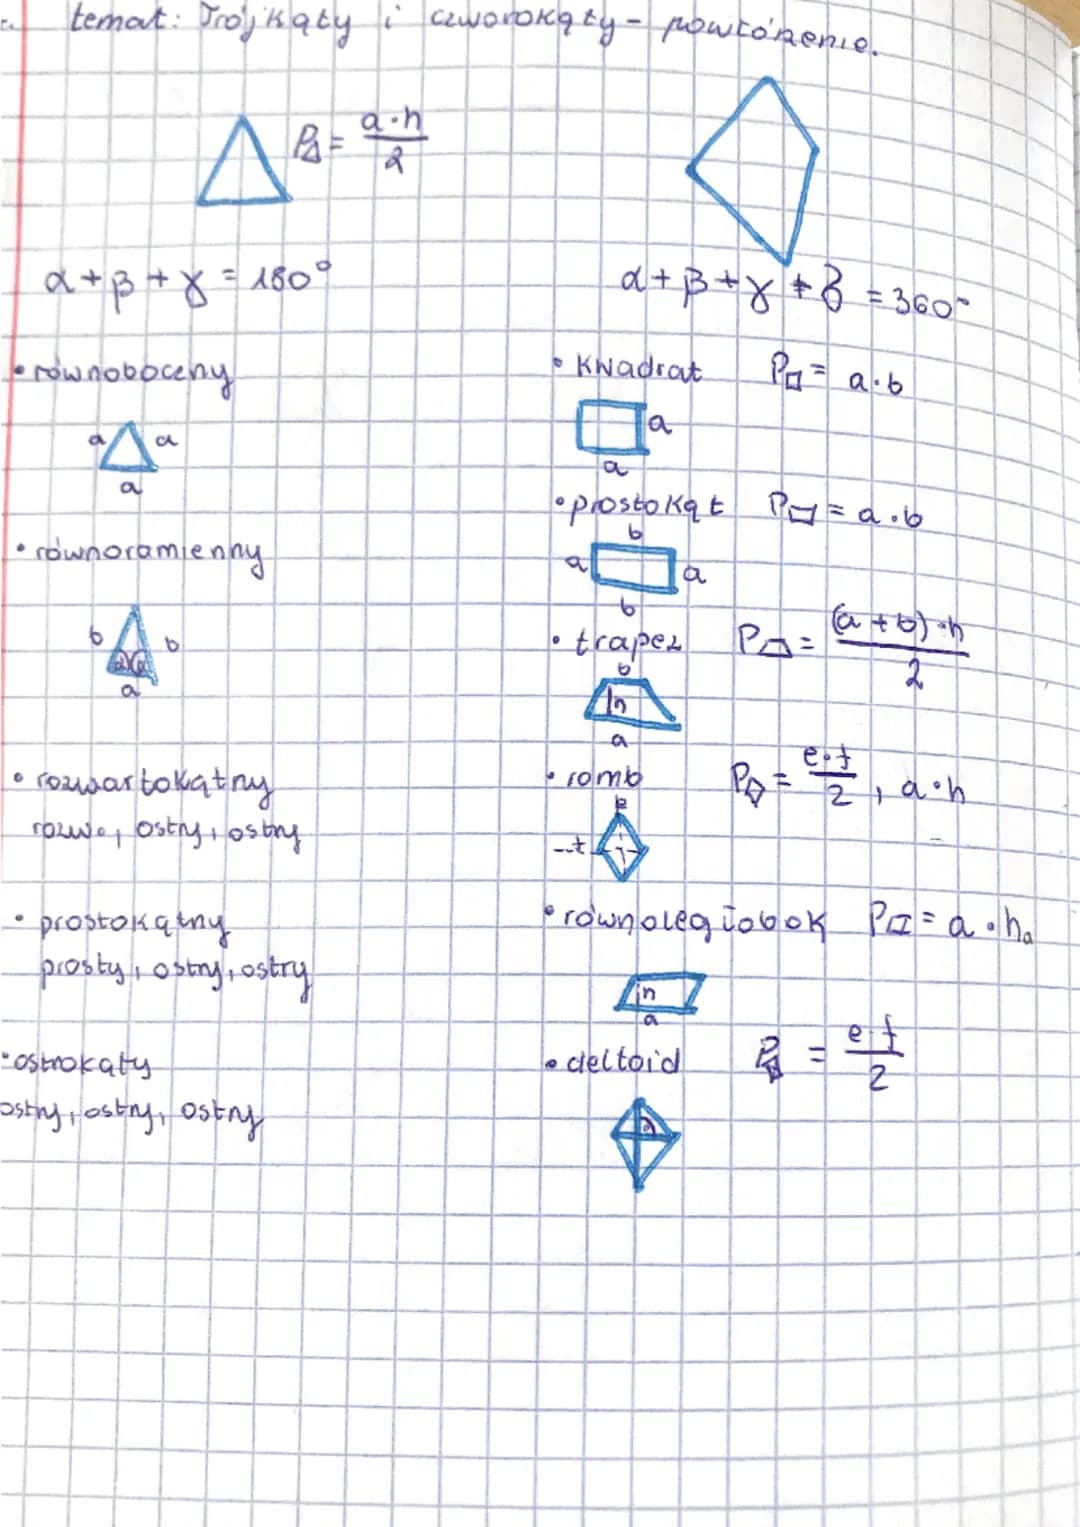 temat: Trójkąty i czworokąty - powtórzenie.
P△ = a·h/2
α + β + γ = 180°
α + β + γ + δ = 360°
• równoboczny
a a
a
• równoramienny
b b
a
• rozwartokątny
rozw., ostry, ostry
• prostokątny
prosty, ostry, ostry
• ostrokąty
ostry, ostry, ostry
• Kwadrat P□ = a·b
a
a
• prostokąt P▭ = a·b
b
a a
b
• trapez P = (a+b)·h/2
b
h
a
• romb P = e·f/2, a·h
e
f
• równoległobok P▱ = a·hₐ
h
a
• deltoid P = e·f/2